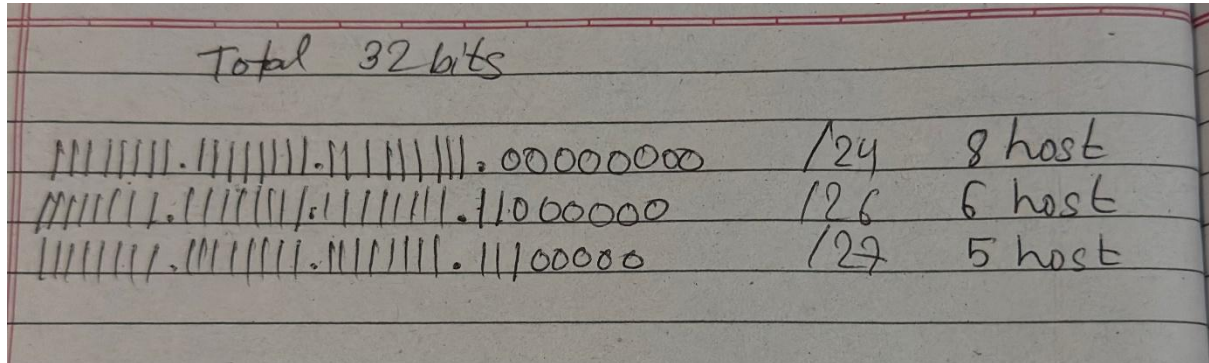 Total 32 bits
11111111.11111111.11111111.00000000 /24 8 host
11111111.11111111.11111111.11000000 /26 6 host
11111111.11111111.11111111.11100000 /27 5 host